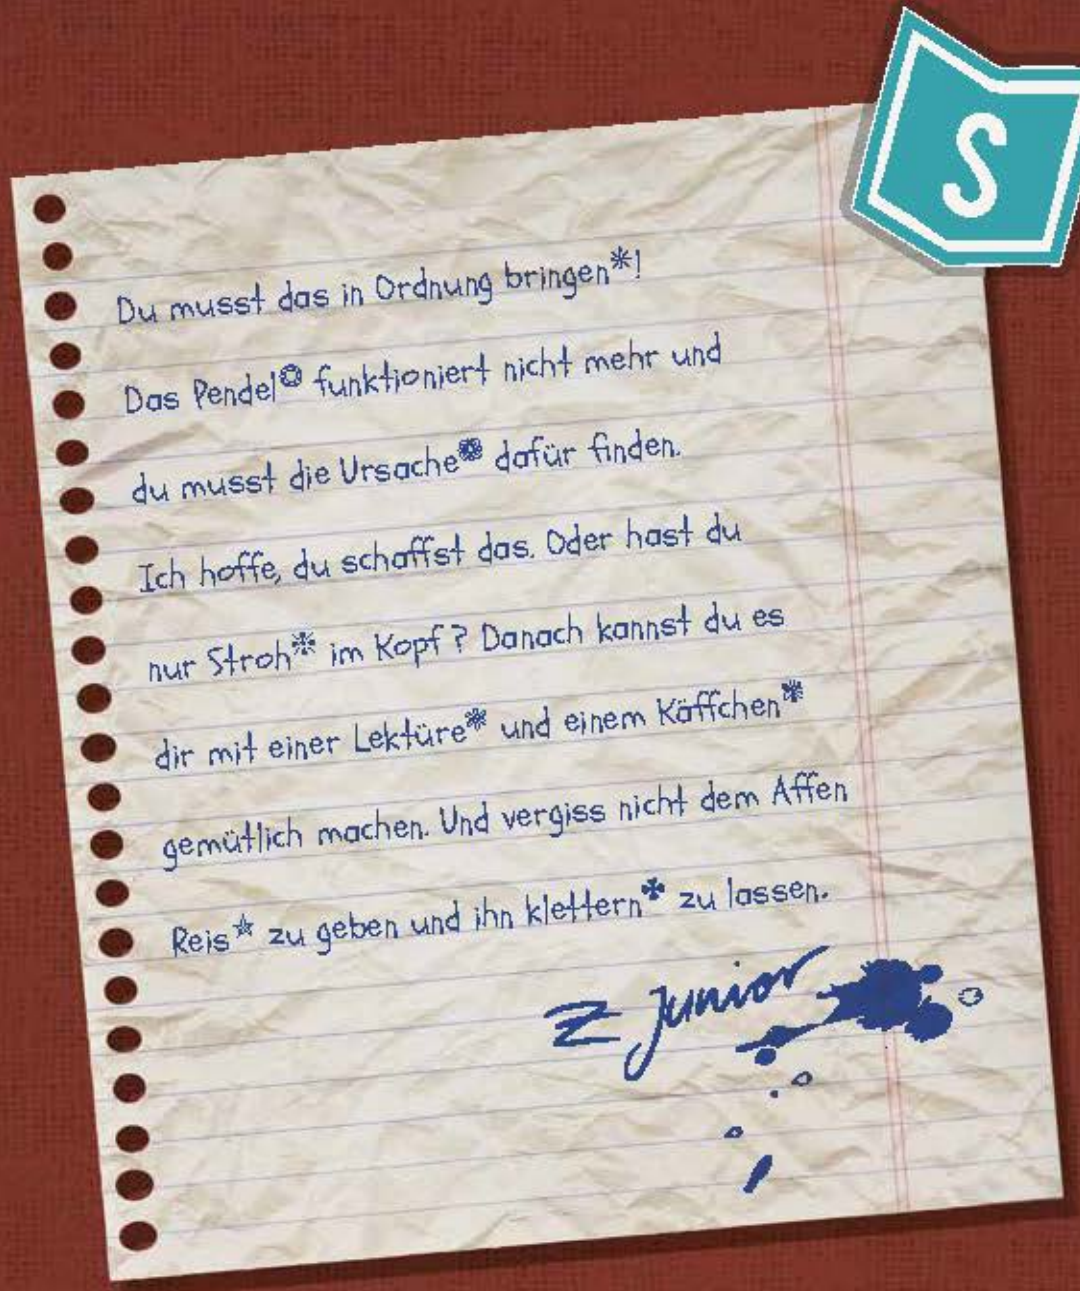 S
Du musst das in Ordnung bringen*!
Das Pendel❂ funktioniert nicht mehr und
du musst die Ursache❁ dafür finden.
Ich hoffe, du schaffst das. Oder hast du
nur Stroh❉ im Kopf? Danach kannst du es
dir mit einer Lektüre❋ und einem Käffchen❃
gemütlich machen. Und vergiss nicht dem Affen
Reis☆ zu geben und ihn klettern✤ zu lassen.
Z Junior